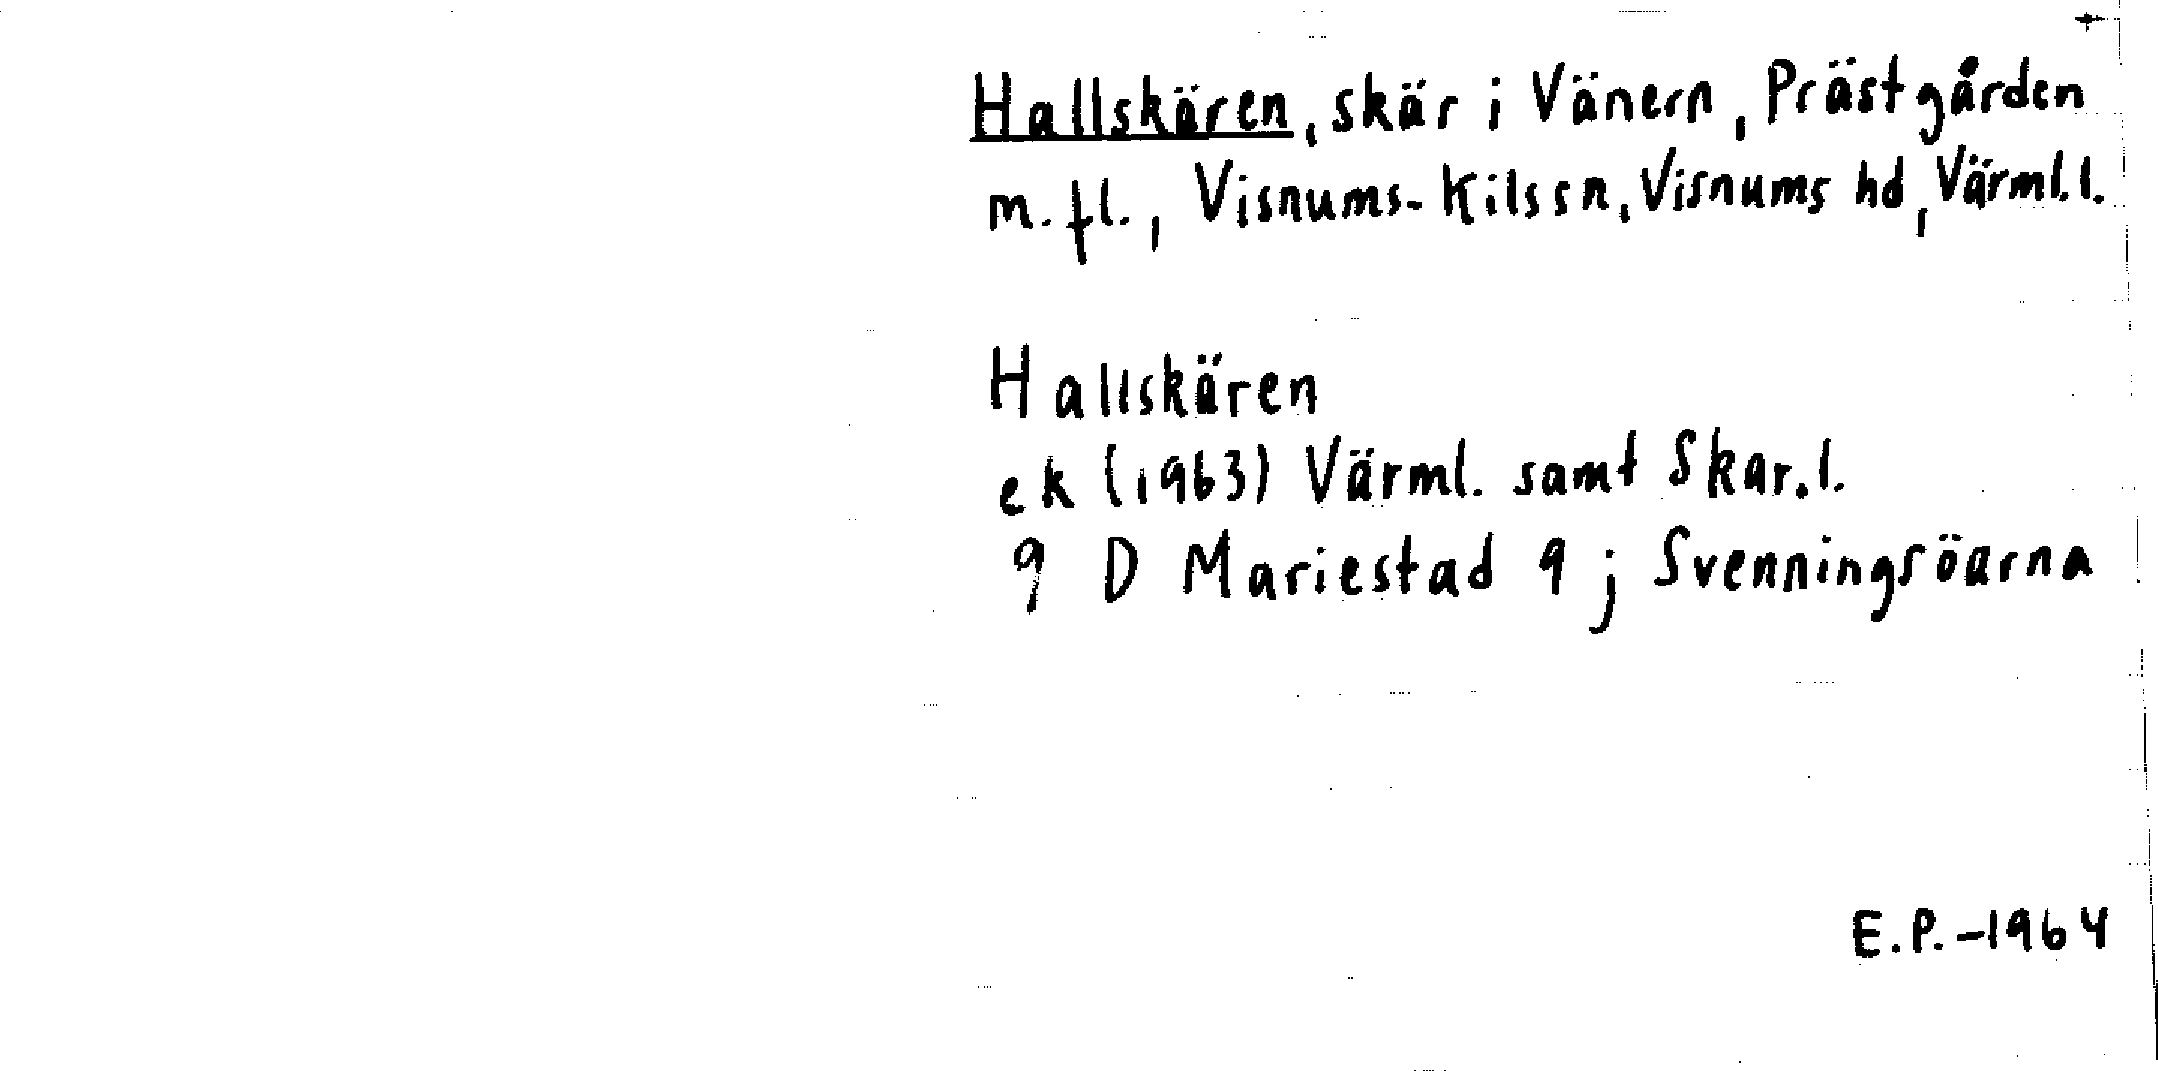 Hallskären, skär i Vänern, Prästgården
m.fl., Visnums-Kils sn, Visnums hd, Värml.l.
Hallskären
ek (1963) Värml. samt Skar.l.
9 D Mariestad 9 j Svenningsöarna
E.P.-1964